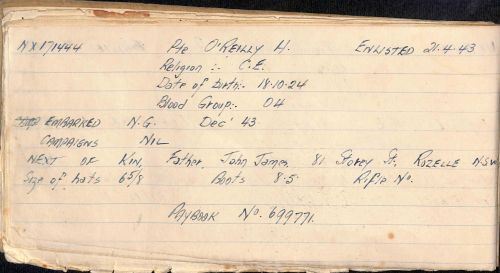 NX171444 Pte O'REILLY H. ENLISTED 21.4.43
Religion :- C.E.
Date of birth:- 18.10.24
Blood Group:- O4
EMBARKED N.G. Dec' 43
CAMPAIGNS NIL
NEXT OF KIN, Father, John James, 81 Storey St, ROZELLE NSW
Size of hats 6 5/8 Boots 8.5 Rifle No.
PAYBOOK No. 699771.